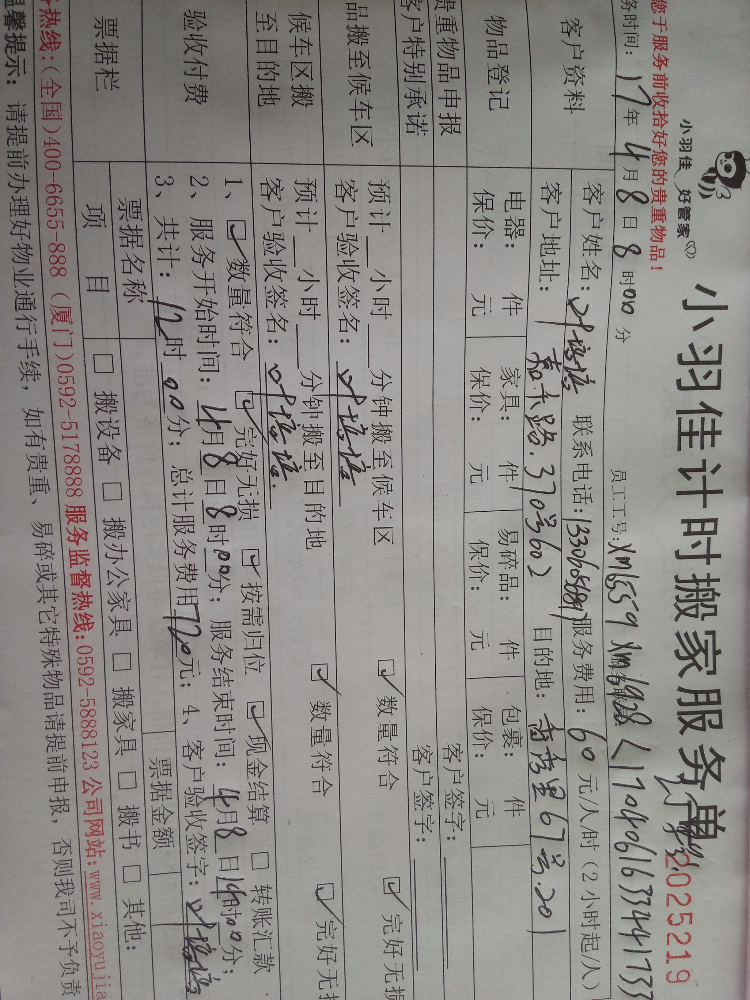 小羽佳 好管家
小羽佳计时搬家服务单
2025219
您于服务前收拾好您的贵重物品！
务时间：17年4月8日8时00分 员工工号：xm1659 xm6928
客户资料
客户姓名：叶 联系电话： 服务费用：60元/人/时（2小时起/人）
客户地址：嘉禾路.370号602 目的地：67号.201
物品登记
电器： 件 家具： 件 易碎品： 件 包裹： 件
保价： 元 保价： 元 保价： 元 保价： 元
贵重物品申报 客户签字：
客户特别承诺 客户签字：
品搬至候车区
预计 小时 分钟搬至候车区 ☑ 数量符合 ☑ 完好无损
客户验收签名：叶
候车区搬至目的地
预计 小时 分钟搬至目的地 ☑ 数量符合 ☑ 完好无损
客户验收签名：叶
验收付费
1、☑ 数量符合 ☑ 完好无损 ☑ 按需归位 ☑ 现金结算 ☐ 转账汇款
2、服务开始时间：4月8日8时00分；服务结束时间：4月8日14时00分；
3、共计：12时00分；总计服务费用720元；4、客户验收签字：叶
票据栏
票据名称 票据金额
项目 ☐ 搬设备 ☐ 搬办公家具 ☐ 搬家具 ☐ 搬书 ☐ 其他：
务热线：（全国）400-6655-888（厦门）0592-5178888 服务监督热线：0592-5888123 公司网站：www.xiaoyujia
温馨提示：请提前办理好物业通行手续，如有贵重、易碎或其它特殊物品请提前申报，否则我司不予负责